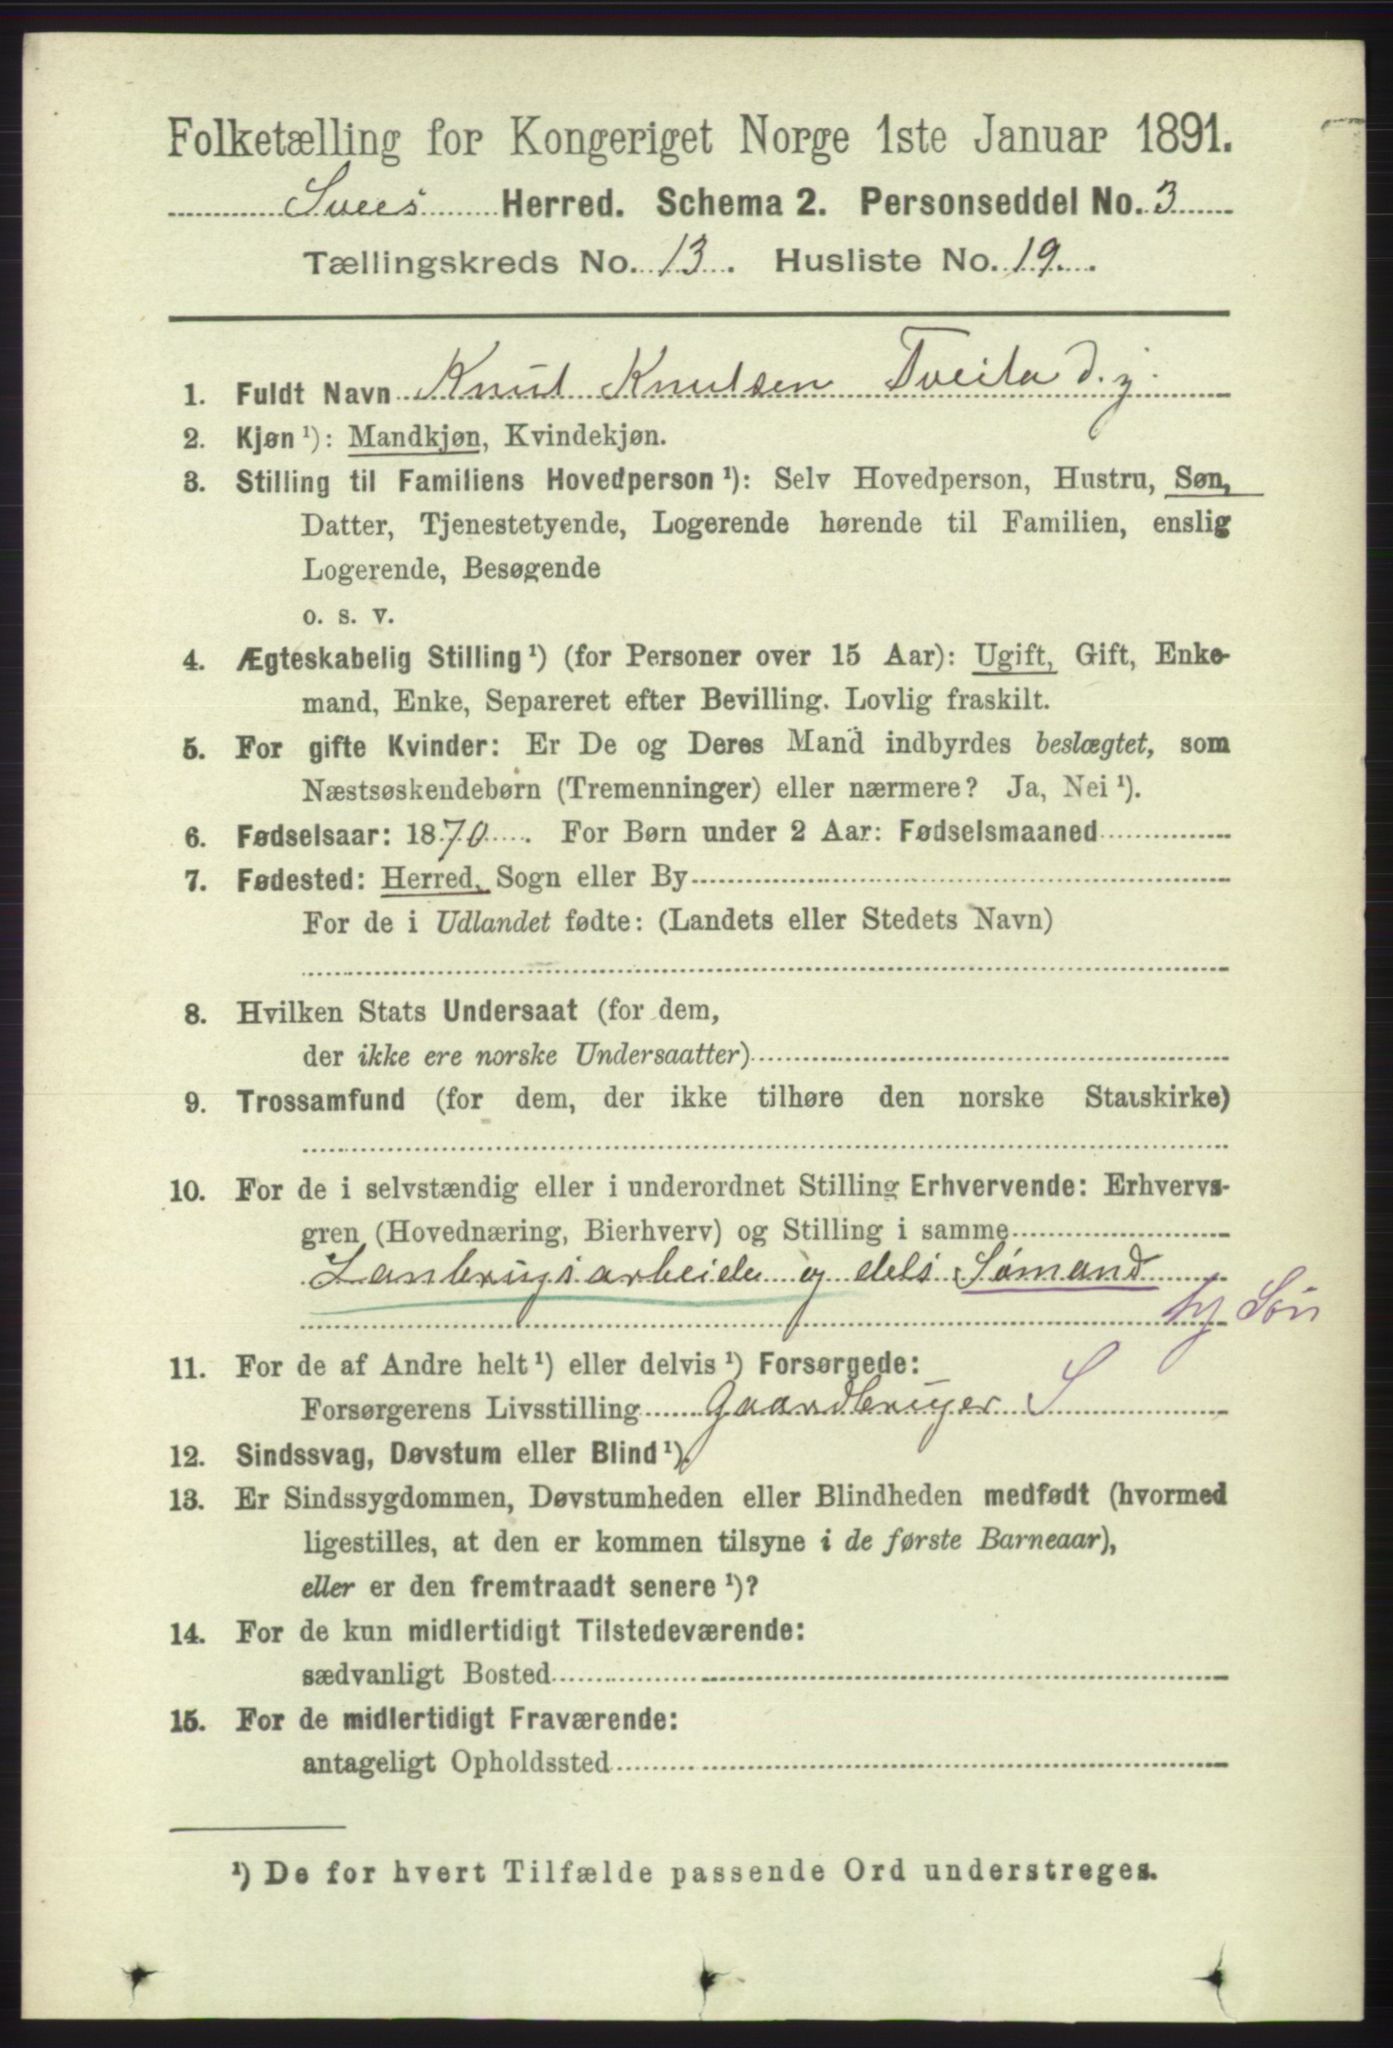 Folketælling for Kongeriget Norge 1ste Januar 1891.
Svees Herred. Schema 2. Personseddel No. 3
Tællingskreds No. 13. Husliste No. 19.
1. Fuldt Navn Knut Knutsen Tveita d. y.
2. Kjøn ¹): Mandkjøn, Kvindekjøn.
3. Stilling til Familiens Hovedperson ¹): Selv Hovedperson, Hustru, Søn,
Datter, Tjenestetyende, Logerende hørende til Familien, enslig
Logerende, Besøgende
o. s. v.
4. Ægteskabelig Stilling ¹) (for Personer over 15 Aar): Ugift, Gift, Enke-
mand, Enke, Separeret efter Bevilling. Lovlig fraskilt.
5. For gifte Kvinder: Er De og Deres Mand indbyrdes beslægtet, som
Næstsøskendebørn (Tremenninger) eller nærmere? Ja, Nei ¹).
6. Fødselsaar: 1870. For Børn under 2 Aar: Fødselsmaaned
7. Fødested: Herred, Sogn eller By
For de i Udlandet fødte: (Landets eller Stedets Navn)
8. Hvilken Stats Undersaat (for dem,
der ikke ere norske Undersaatter)
9. Trossamfund (for dem, der ikke tilhøre den norske Statskirke)
10. For de i selvstændig eller i underordnet Stilling Erhvervende: Erhvervs-
gren (Hovednæring, Bierhverv) og Stilling i samme
Lanbrugsarbeide og dels Sømand
hj Søn
11. For de af Andre helt ¹) eller delvis ¹) Forsørgede:
Forsørgerens Livsstilling Gaardbruger S
12. Sindssvag, Døvstum eller Blind ¹).
13. Er Sindssygdommen, Døvstumheden eller Blindheden medfødt (hvormed
ligestilles, at den er kommen tilsyne i de første Barneaar),
eller er den fremtraadt senere ¹)?
14. For de kun midlertidigt Tilstedeværende:
sædvanligt Bosted
15. For de midlertidigt Fraværende:
antageligt Opholdssted
¹) De for hvert Tilfælde passende Ord understreges.